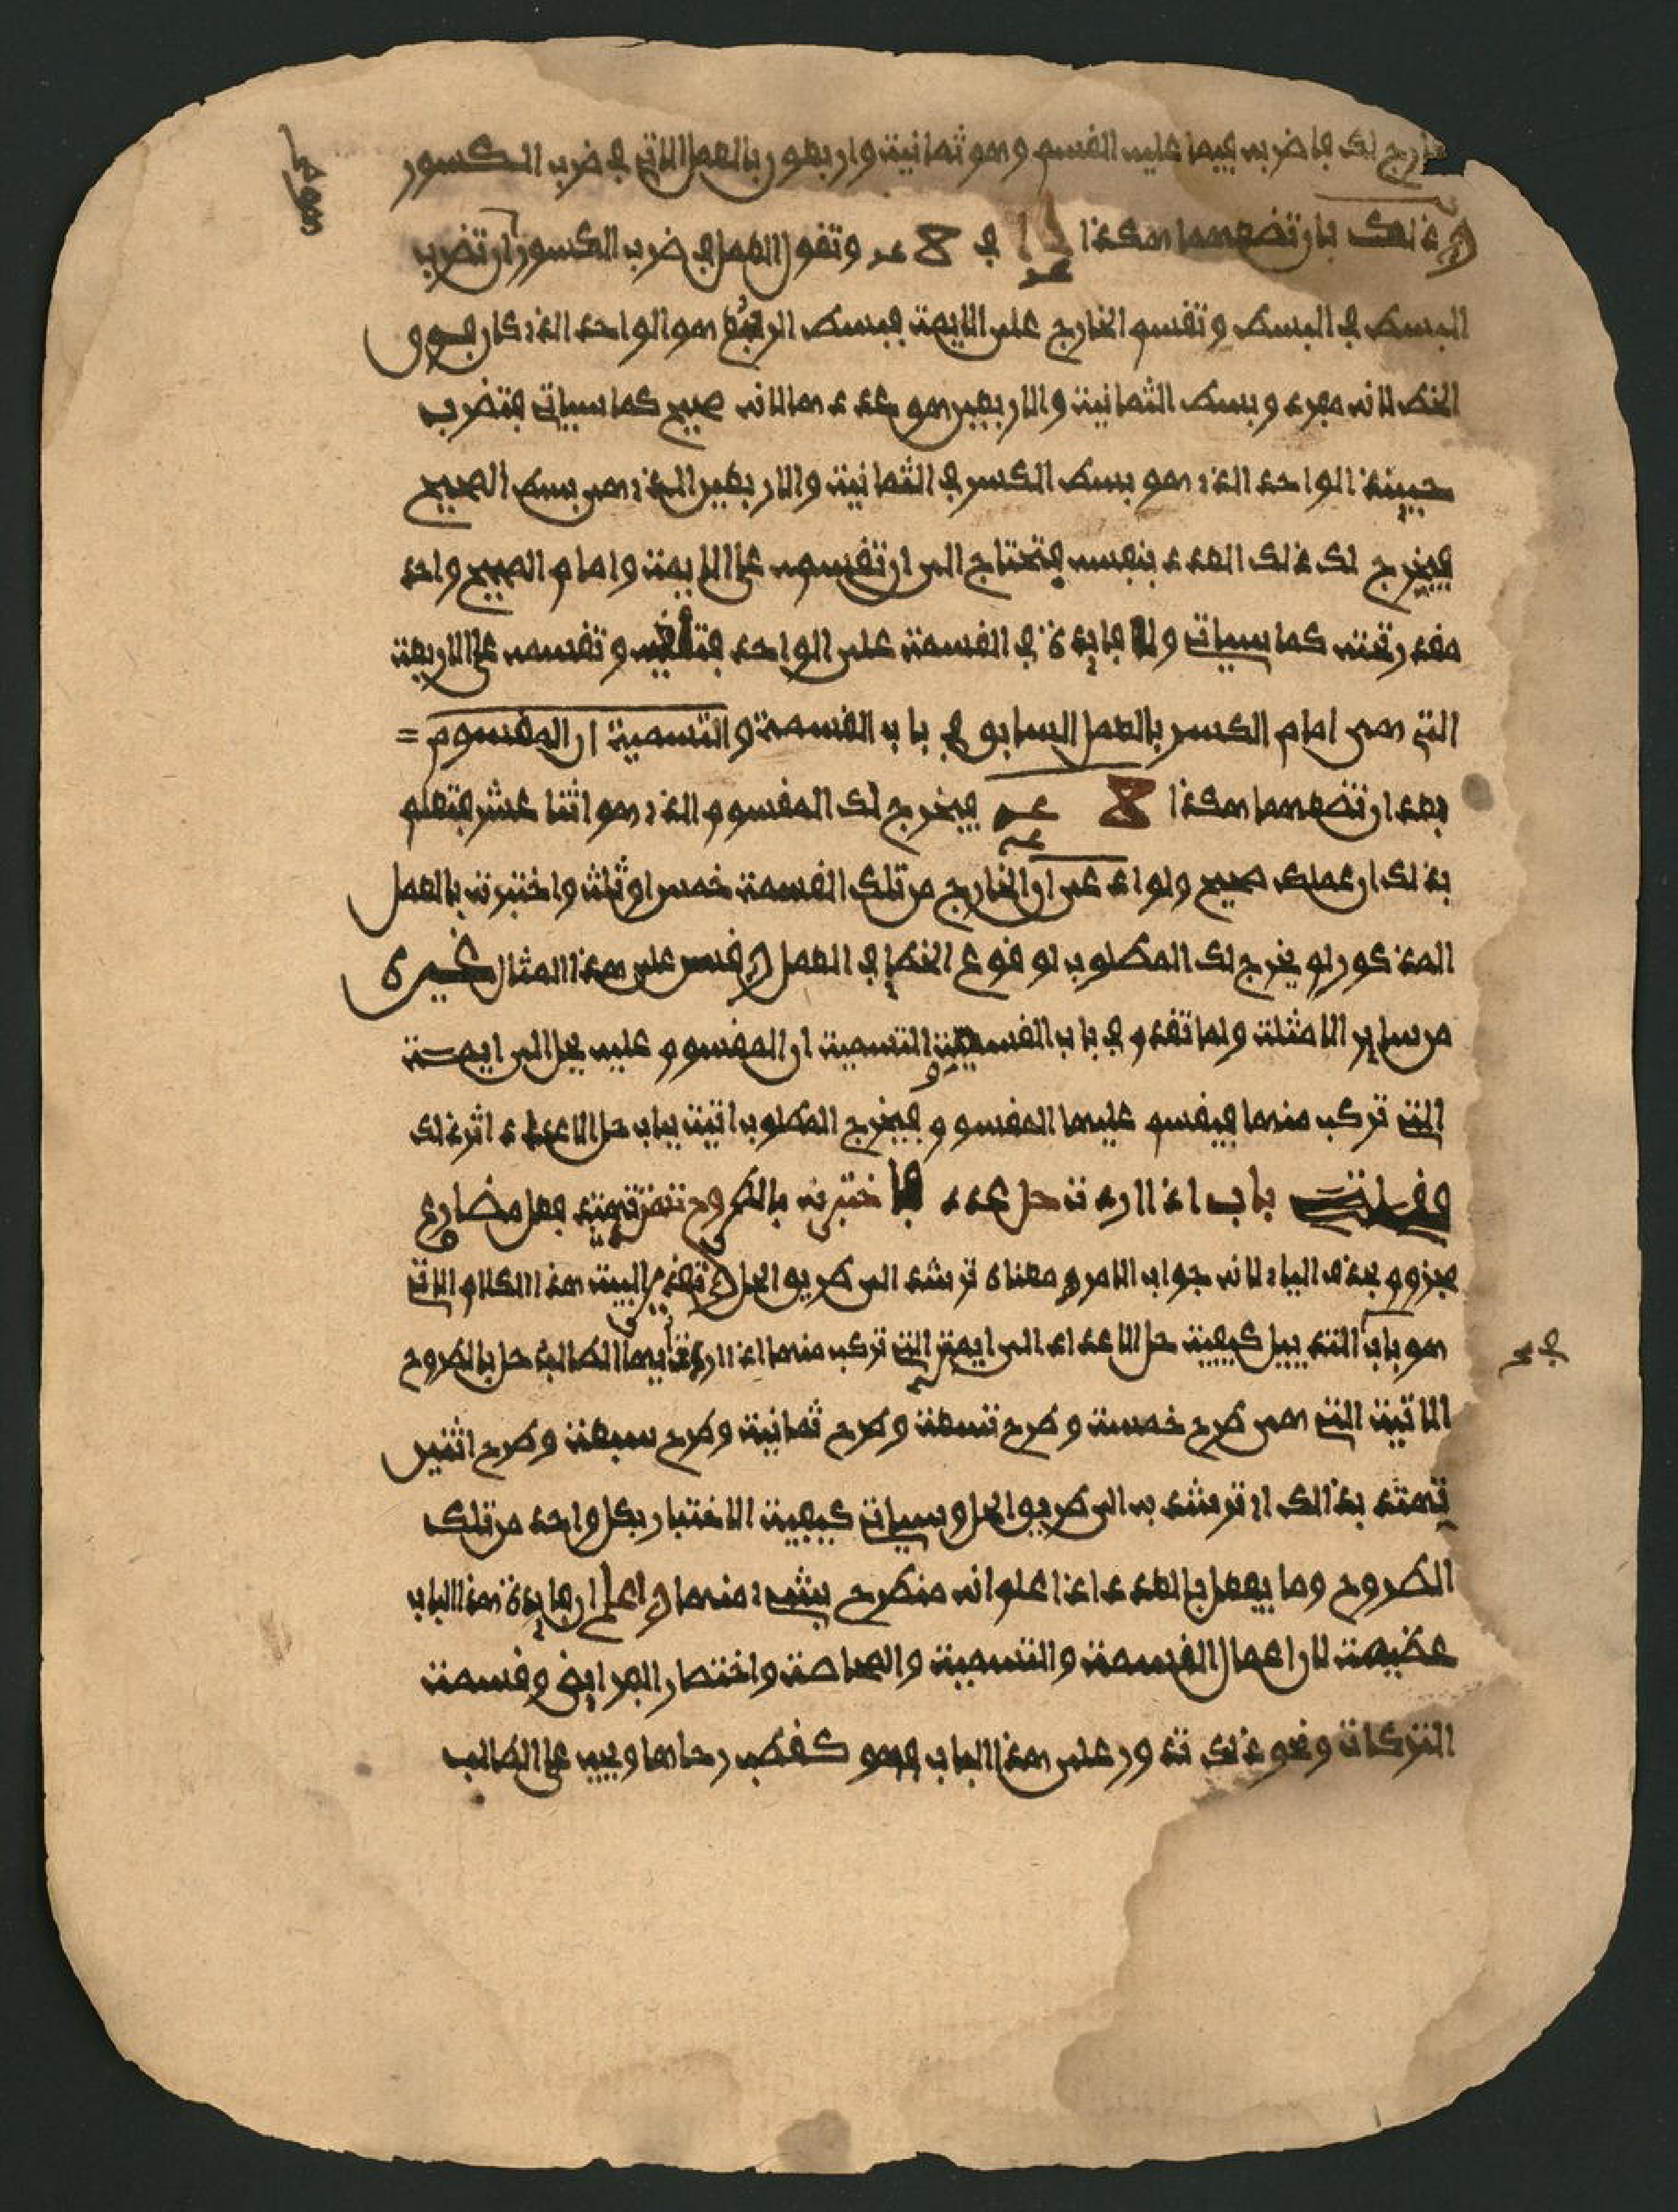 خارج لك فاضربه فيما عليه القسم وهو ثمانية واربعون بالعمل الاتي في ضرب الكسور
وذلك بان تضعهما هكذا في وتقول العمل في ضرب الكسور ان تضرب
البسط في البسط وتقسم الخارج على الايمة فبسط الربع هو الواحد الذي كان فوق
الخط لانه مفرد وبسط الثمانية والاربعين هو عددها لانه صحيح كما سياتي فتضرب
حينئذ الواحد الذي هو بسط الكسر في الثمانية والاربعين الذي هي بسط الصحيح
فيخرج لك ذلك العدد بنفسه فتحتاج الى ان تقسمه على الايمة وامام الصحيح واحد
مقدر تحته كما سياتي ولا فايدة في القسمة على الواحد وتقسمه على الاربعة
التي هي امام الكسر بالعمل السابق في باب القسمة والتسمية ان المقسوم =
بعد ان تضعهما هكذا فيخرج لك المقسوم الذي هو اثنا عشر فتعلم
بذلك ان عملك صحيح ولو ادعى ان الخارج من تلك القسمة خمس او ثلث واختبرته بالعمل
المذكور لم يخرج لك المطلوب لوقوع الخطا في العمل وقس على هذا المثال غيره
من ساير الامثلة ولما تقدم في باب القسمة والتسمية ان المقسوم عليه يحل الى ايمـــة
التي تركب منها فيقسم عليها المقسوم فيخرج المطلوب اتيت بباب حل الاعداد اثر ذلك
فقلت باب اذا اردت حل عدد فاختبرنه بالطروح تهتد فعل مضارع
مجزوم بحذف الياء لانه جواب الامر ومعناه ترشد الى طريق الحل البيت هذا الكلام الاتي
هو باب التي يبين كيفية حل الاعداد الى ايمة التي تركب منها اذا اردت ايها الطالب حل بالطروح
الاتية التي هي طرح خمسة وطرح تسعة وطرح ثمانية وطرح سبعة وطرح اثنين
تهتد بذالك اي ترشد به الى طريق الحل وسياتي كيفية الاختبار بكل واحد من تلك
الطروح وما يفعل بالعدد اذا علم انه منطرح بشيء منها واعلم ان فايدة هذا الباب
عظيمة لان اعمال القسمة والتسمية والمحاصة واختصار الفرايض وقسمة
التركات ونحو ذلك تدور على هذا الباب فهو كقطب رحاها ويجب على الطالب